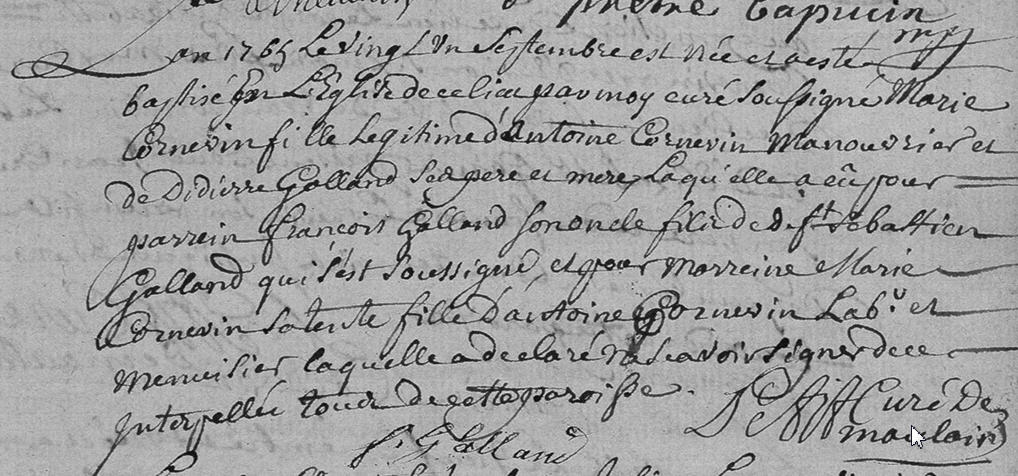 prêtre Capucin
an 1765 Le vingt un Septembre est Née et a esté
baptisé En L'Eglise de ce lieu par moy curé Soussigné Marie
Cornevin fille Legitime d'Antoine Cornevin Manouvrier et
de Didierre Galland Ses pere et mere, Laqu'elle a eû pour
parrein François Galland son oncle fils de dft Sebastien
Galland qui s'est Soussigné, et pour Marreine Marie
Cornevin sa tente fille d'Antoine Cornevin Labr et
Menuisier laquelle a declaré ne Scavoir Signer de ce
Interpellée tous de cette paroisse.
Curé De
maulain
f. Galland